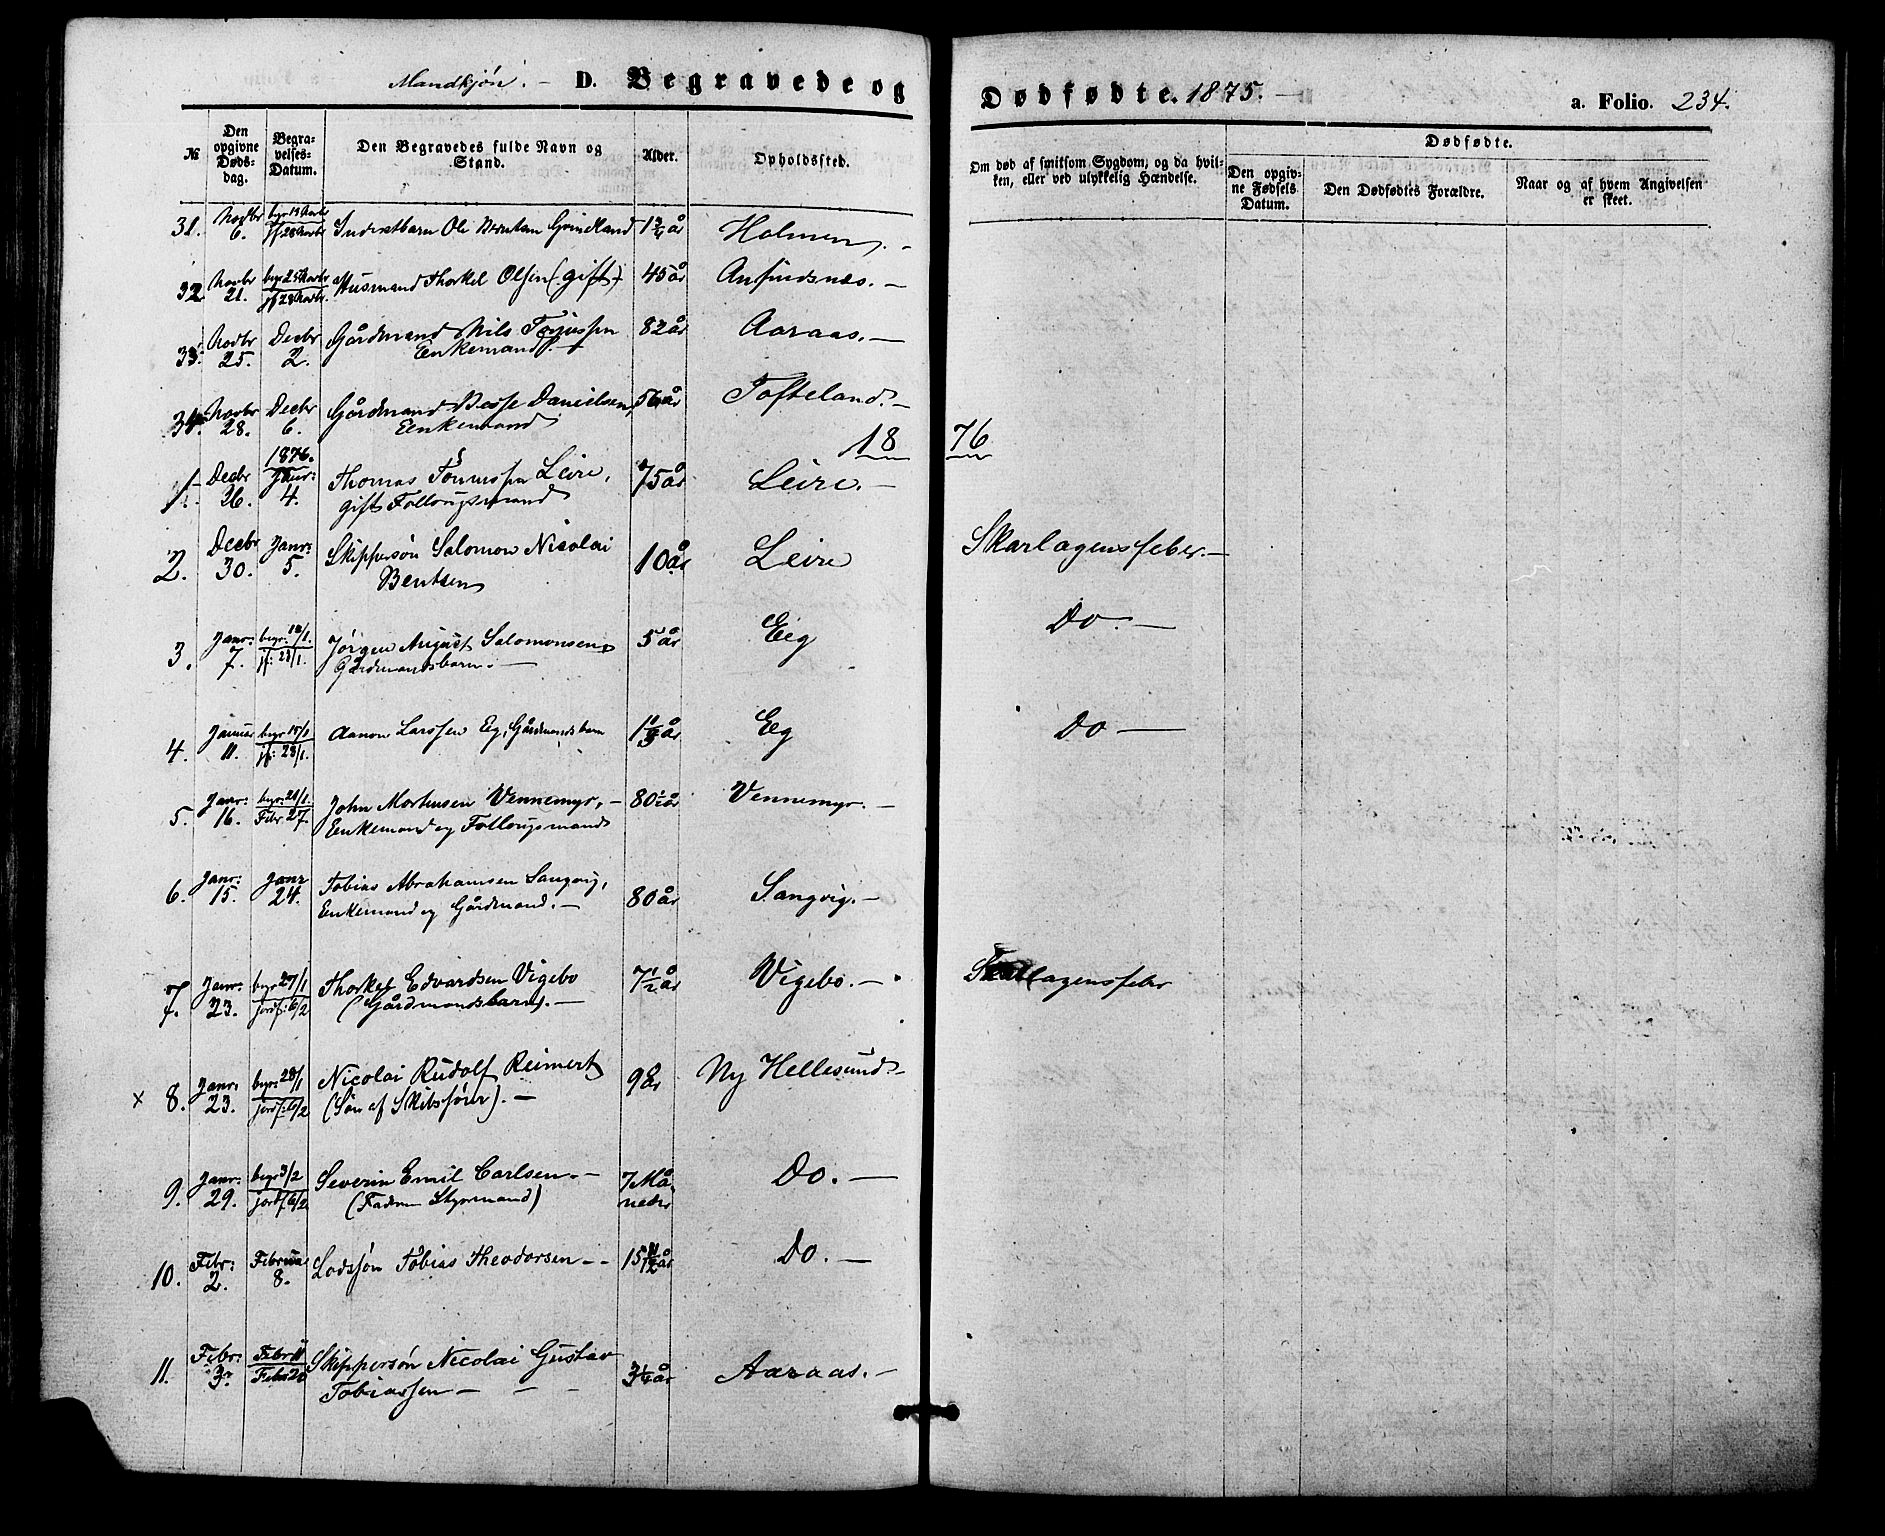 Mandkjøn. — D. Begravede og Dødfødte. 1875. — a. Folio. 234.
№ Den opgivne Døds-dag. Begra-velses-Datum. Den Begravedes fulde Navn og Stand. Alder. Opholdssted. Om død af smitsom Sygdom, og da hvil-ken, eller ved ulykkelig Hændelse. Dødfødte. Den opgiv-ne Fødsels Datum. Den Dødfødtes Forældre. Naar og af hvem Angivelsen er skeet.
31. Novbr 6. jf 28 Novbr Ole Grindland 1 3/4 år Holmen. —
32 Novbr 21. begr 25 Novbr jf 28 Novbr. Husmand Thorkel Olsen (gift) 45 år Anfindsnæs. —
33. Novbr 25. Decbr 2. Gårdmand Nils
Enkemand. — 82 år Aaraas. —
34. Novbr 28. Decbr 6. Gårdmand Danielsen
Enkemand 56 år Tofteland. —
1876
1. Decbr 26. 1876. Janr: 4. Thomas Leire,
gift Føllougsmand 75 år Leire. —
2. Decbr 30. Janr: 5. Skippersøn Salomon Nicolai
Bentsen 10 år Leire Skarlagensfeber. —
3. Janr: 7. begr: 12/1. jf: 23/1. Jørgen August Salomonsen,
Gårdmandsbarn. — 5 år Eeg Do. —
4. Januar 11. begr 15/1 jf: 23/1. Aanon Larssen Eg, Gårdmandsbarn Eeg Do —
5. Janr: 16. Febr 27. John Mortensen Vennemyr, —
Enkemand og Føllougsmand 80 1/2 år Vennemyr. —
6. Janr: 15. Janr 24. Tobias Abrahamsen Sangvig,
Enkemand og Gårdmand. — 80 år Sangvig. —
7. Janr: 23. begr 27/1 jordf: 6/2 Thorkel Edvardsen Vigebo
(Gårdmandsbarn). — 7 1/2 år Vigebo. — Skarlagensfeber
× 8. Janr: 23. begr: 28/1 jordf: 6/2 Nicolai Rudolf Reimert
(Søn af Skibsfører). — 9 år Ny Hellesund —
9. Janr: 29. begr 3/2 jordf 6/2 Severin Emil Carlsen. —
(Faderen Styrmand) 7 Må-neder Do. —
10. Febr: 2. Februar 8. Lodssøn Tobias Theodorsen — 15 11/12 år Do. —
11. Febr: 3. Febr 11 Febr 20 Skippersøn Nicolai Gustav
Tobiassen — — — 3 1/4 år Aaraas. —